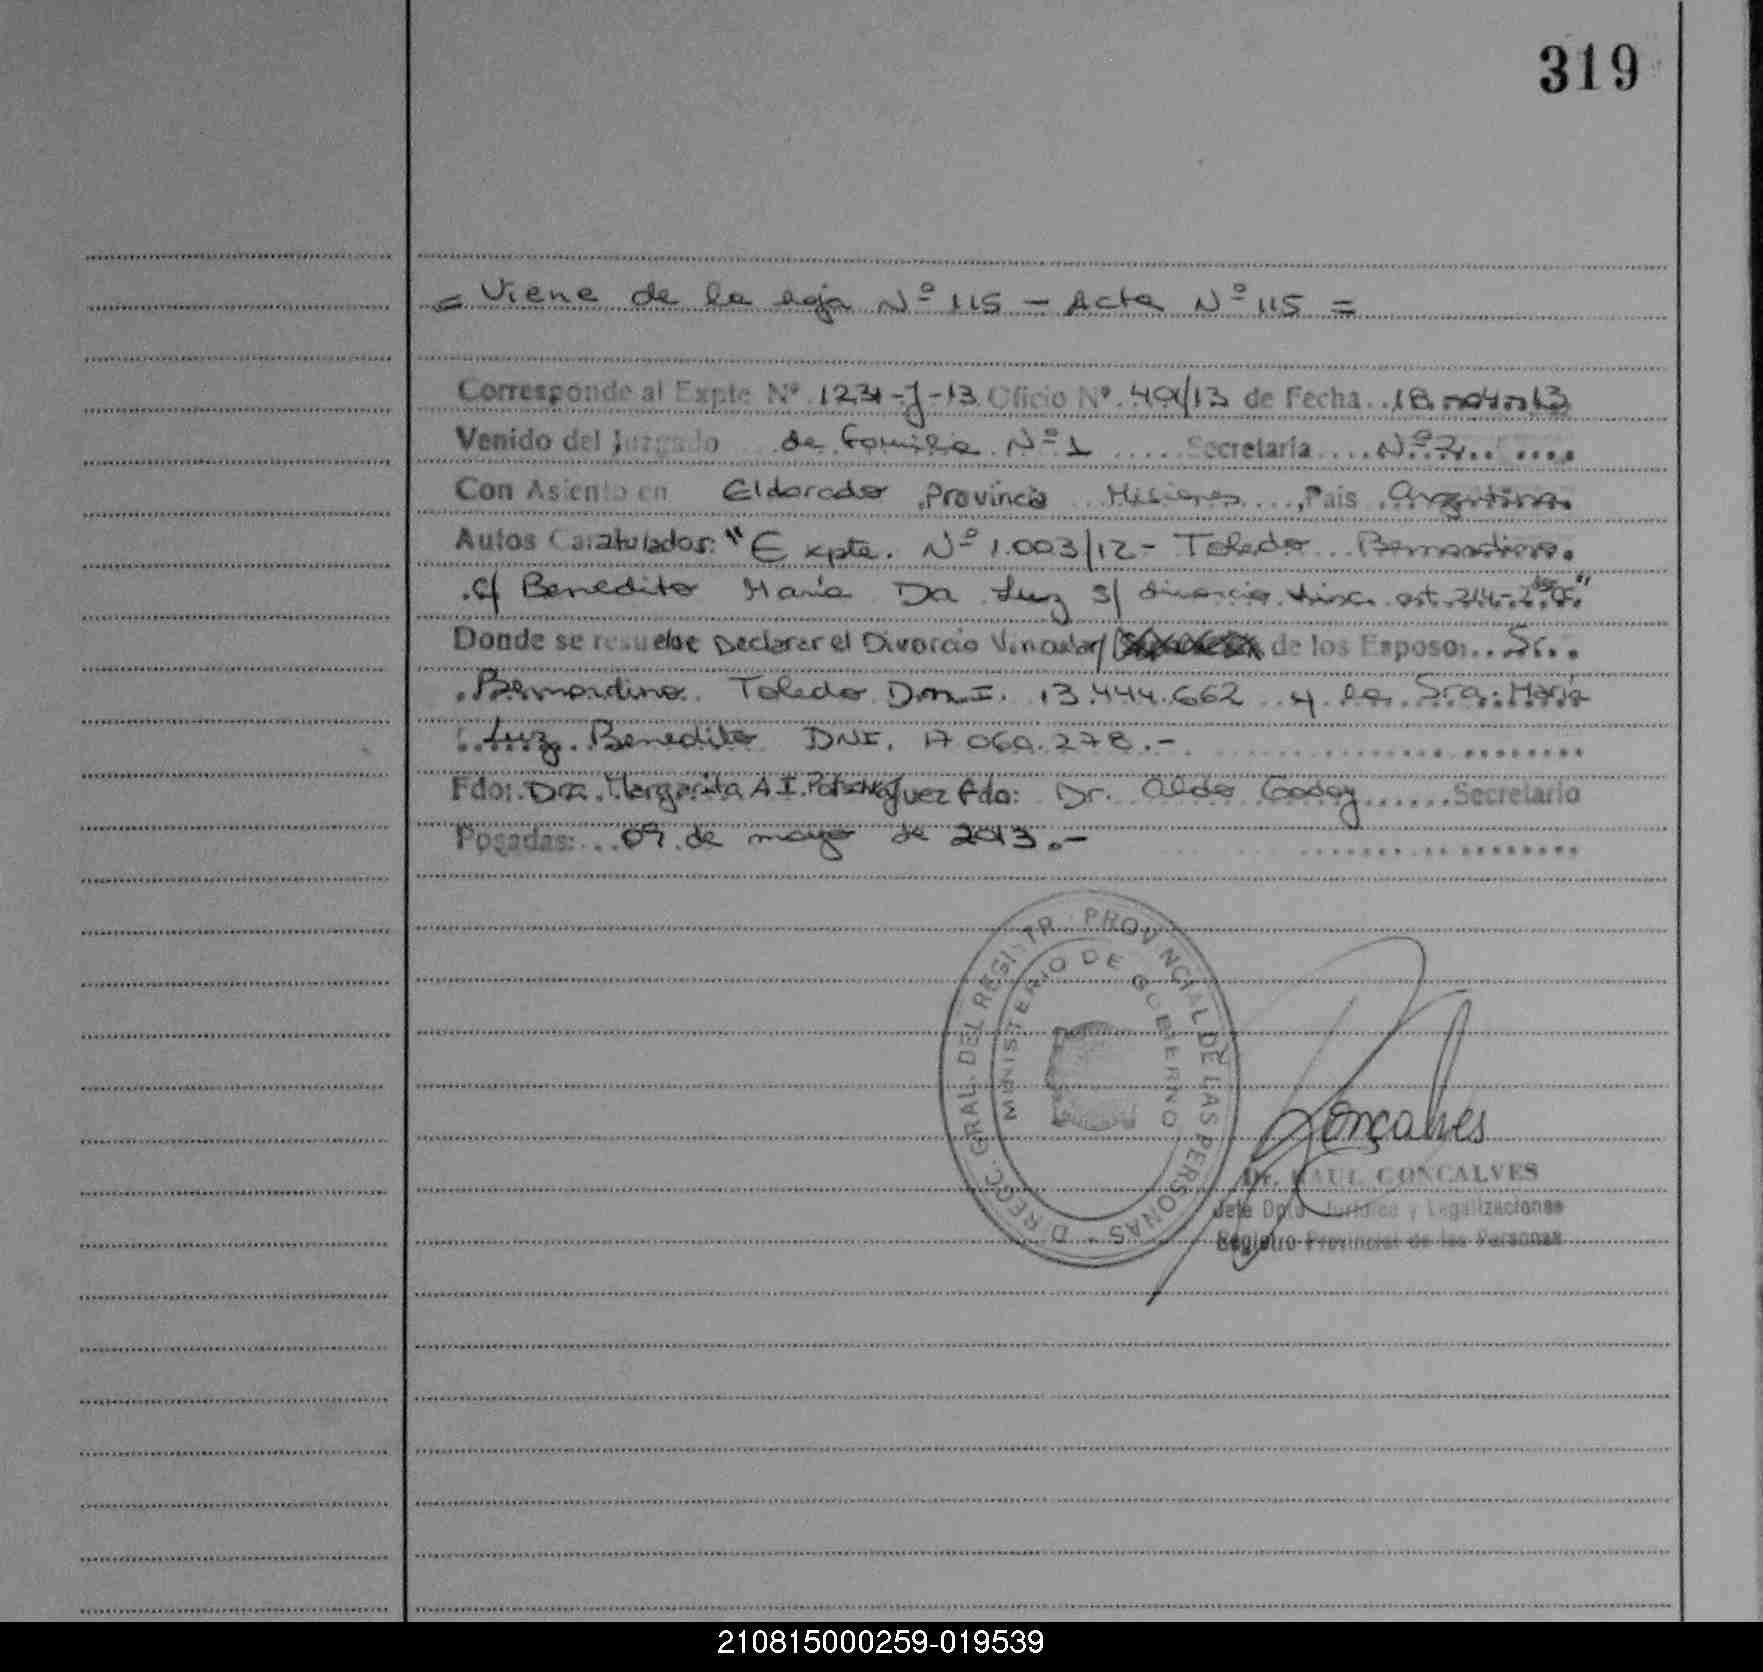 319
= Viene de la oja Nº 115 - Acta Nº 115 =
Corresponde al Expte Nº 1231-J-13 Oficio Nº 491/13 de Fecha 18-04-13
Venido del Juzgado de Familia Nº 1 Secretaría Nº 2
Con Asiento en Eldorado, Provincia Misiones, País Argentina.
Autos Caratulados: "Expte. Nº 1.003/12 - Toledo Bernardino.
c/ Benedito María Da Luz s/ divorcio vinc. art. 214-2º
Donde se resuelve Declarar el Divorcio Vincular/ de los Esposos Sr.
Bernardino Toledo D.N.I. 13.444.662 y la Sra. María
Luz Benedito DNI. 17 060.278.-
Fdo: Dra. Margarita A I. Juez Fdo: Dr. Aldo Godoy Secretario
Posadas: 09 de mayo de 2013.-
DIRECC. GRAL. DEL REGISTR. PROVINCIAL DE LAS PERSONAS
MINISTERIO DE GOBIERNO
Goncalves
Dr. RAUL GONCALVES
Jefe Dpto. Jurídico y Legalizaciones
Registro Provincial de las Personas
210815000259-019539